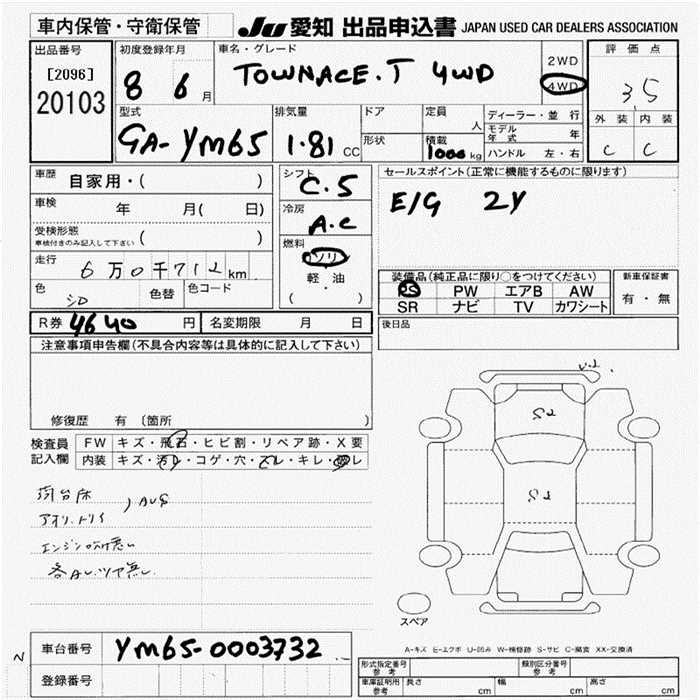 車内保管・守衛保管 JU 愛知 出品申込書 JAPAN USED CAR DEALERS ASSOCIATION
出品番号 初度登録年月 車名・グレード 評価点
[2096] 8 6月 TOWNACE.T 4WD 2WD
20103 4WD 3.5
型式 排気量 ドア 定員 人 ディーラー・並行 外装 内装
GA-YM65 1.81 CC 形状 積載 1000kg モデル年式 年 C C
ハンドル 左・右
車歴 自家用・( ) シフト C.5 セールスポイント(正常に機能するものに限ります)
車検 年 月( 日) 冷房 A.C E/G 2Y
受検形態 ( )
車検付きのみ記入して下さい
燃料 ガソリン
走行 6万0千712km 軽・油
( ・ )
色 シロ 色替 色コード
装備品(純正品に限り○をつけてください) 新車保証書
PS PW エアB AW 有・無
SR ナビ TV カワシート
R券 4640円 名変期限 月 日 後日品
注意事項申告欄(不具合内容等は具体的に記入して下さい)
修復歴 有 〔箇所 )
検査員 FW キズ・飛石・ヒビ割・リペア跡・X要
記入欄 内装 キズ・汚レ・コゲ・穴・スレ・キレ・レ
荷台床
アオリ、トリイ
エンジン吹け悪い
スペア
A-キズ E-エクボ U-凹み W-補修跡 S-サビ C-腐食 XX-交換済
車台番号 YM65-0003732
登録番号
形式指定番号 参考 類別区分番号 参考
車庫証明用 参考 長さ cm 幅 cm 高さ cm
N